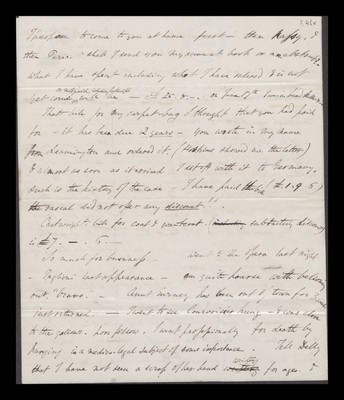 I propose to come to you at home first — then Rugby, &
then Paris. — shall I send you my account book or an abstract of
what I have spent including what I have ordered & is not
yet
That bill for my carpet-bag I thought that you had paid
for — it has been due 2 years — you wrote in my name
from Leamington and ordered it (Hopkins showed me the letter)
& almost as soon as it arrived I set off with it to Germany.
such is the history of the case I have paid the bill £1.9.6)
the rascal did not offer any discount!!
Cartwright's bill for coat & waistcoat. subtracting discount
is £7. — . 6. —
So much for business. went to the Opera last night
— Taglioni's last appearance — an quite hoarse with bellowing
out, "bravo. — Aunt has been out of town for
just returned. — I went to see Courvoisier hung — & was close
to the gallows. I went professionally for death by
hanging is a medico-legal subject of some importance. Tell
that I have not seen a scrap of her hand writing for ages. &